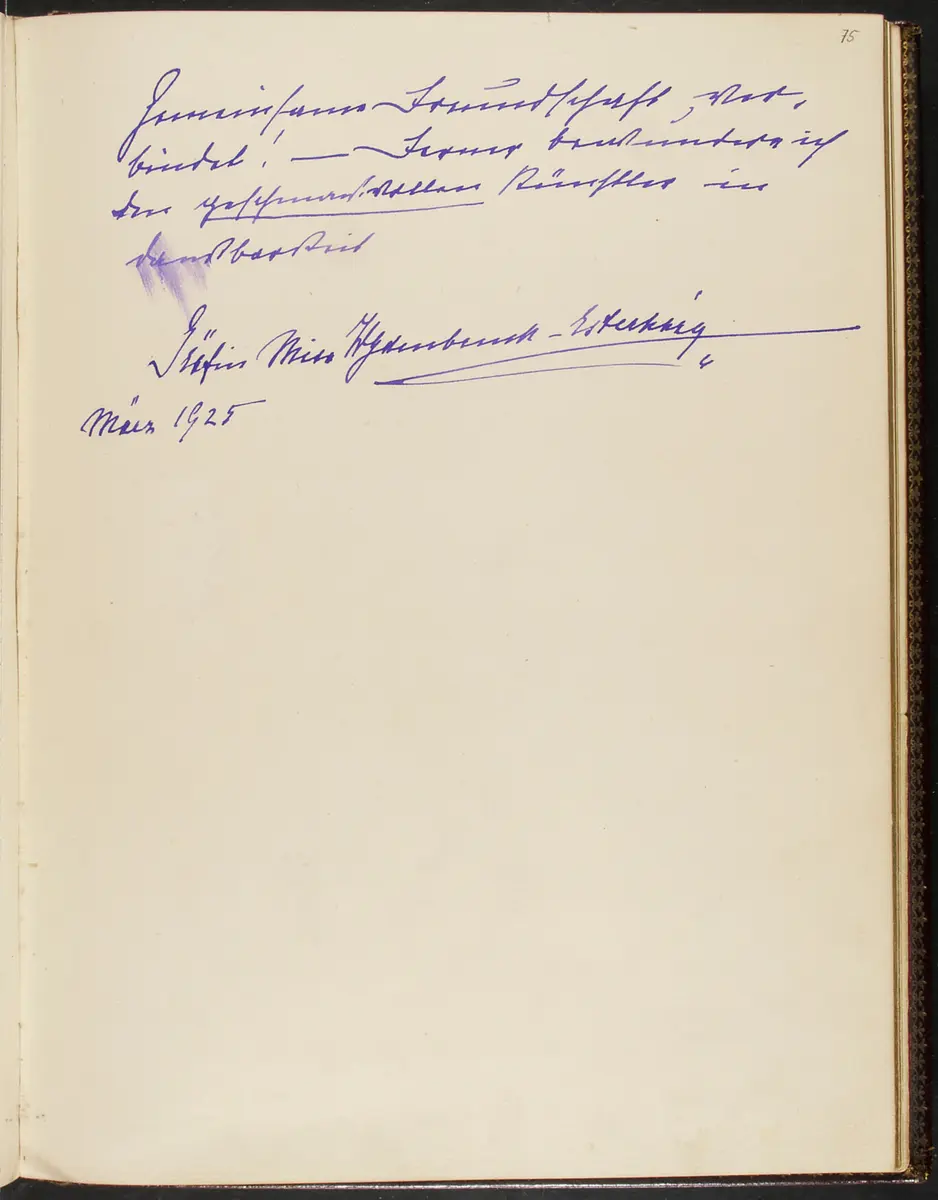 75
Gemeinsame Freundschaft, ver-
bindet! — Ferner bewundere ich
den geschmackvollen Künstler in
dankbarkeit
Gräfin Misa Wydenbruck-Esterházy
März 1925